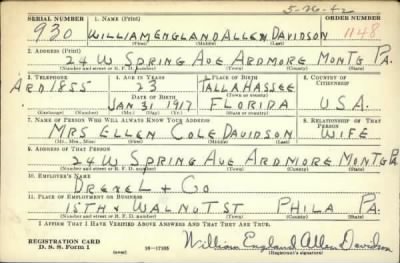 5-26-42
SERIAL NUMBER 1. NAME (Print) ORDER NUMBER
930 WILLIAM ENGLAND ALLEN DAVIDSON 1148
(First) (Middle) (Last)
2. ADDRESS (Print)
24 W SPRING AVE ARDMORE MONTG PA.
(Number and street or R. F. D. number) (Town) (County) (State)
3. TELEPHONE 4. AGE IN YEARS 5. PLACE OF BIRTH 6. COUNTRY OF CITIZENSHIP
ARD 1855 23 TALLAHASSEE
DATE OF BIRTH (Town or county)
JAN 31 1917 FLORIDA U.S.A.
(Exchange) (Number) (Mo.) (Day) (Yr.) (State or country)
7. NAME OF PERSON WHO WILL ALWAYS KNOW YOUR ADDRESS 8. RELATIONSHIP OF THAT PERSON
MRS ELLEN COLE DAVIDSON WIFE
(Mr., Mrs., Miss) (First) (Middle) (Last)
9. ADDRESS OF THAT PERSON
24 W SPRING AVE ARDMORE MONTG PA
(Number and street or R. F. D. number) (Town) (County) (State)
10. EMPLOYER'S NAME
DREXEL & CO
11. PLACE OF EMPLOYMENT OR BUSINESS
15TH & WALNUT ST PHILA PA.
(Number and street or R. F. D. number) (Town) (County) (State)
I AFFIRM THAT I HAVE VERIFIED ABOVE ANSWERS AND THAT THEY ARE TRUE.
REGISTRATION CARD
D. S. S. Form 1 (over) 16-17105 William England Allen Davidson
(Registrant's signature)